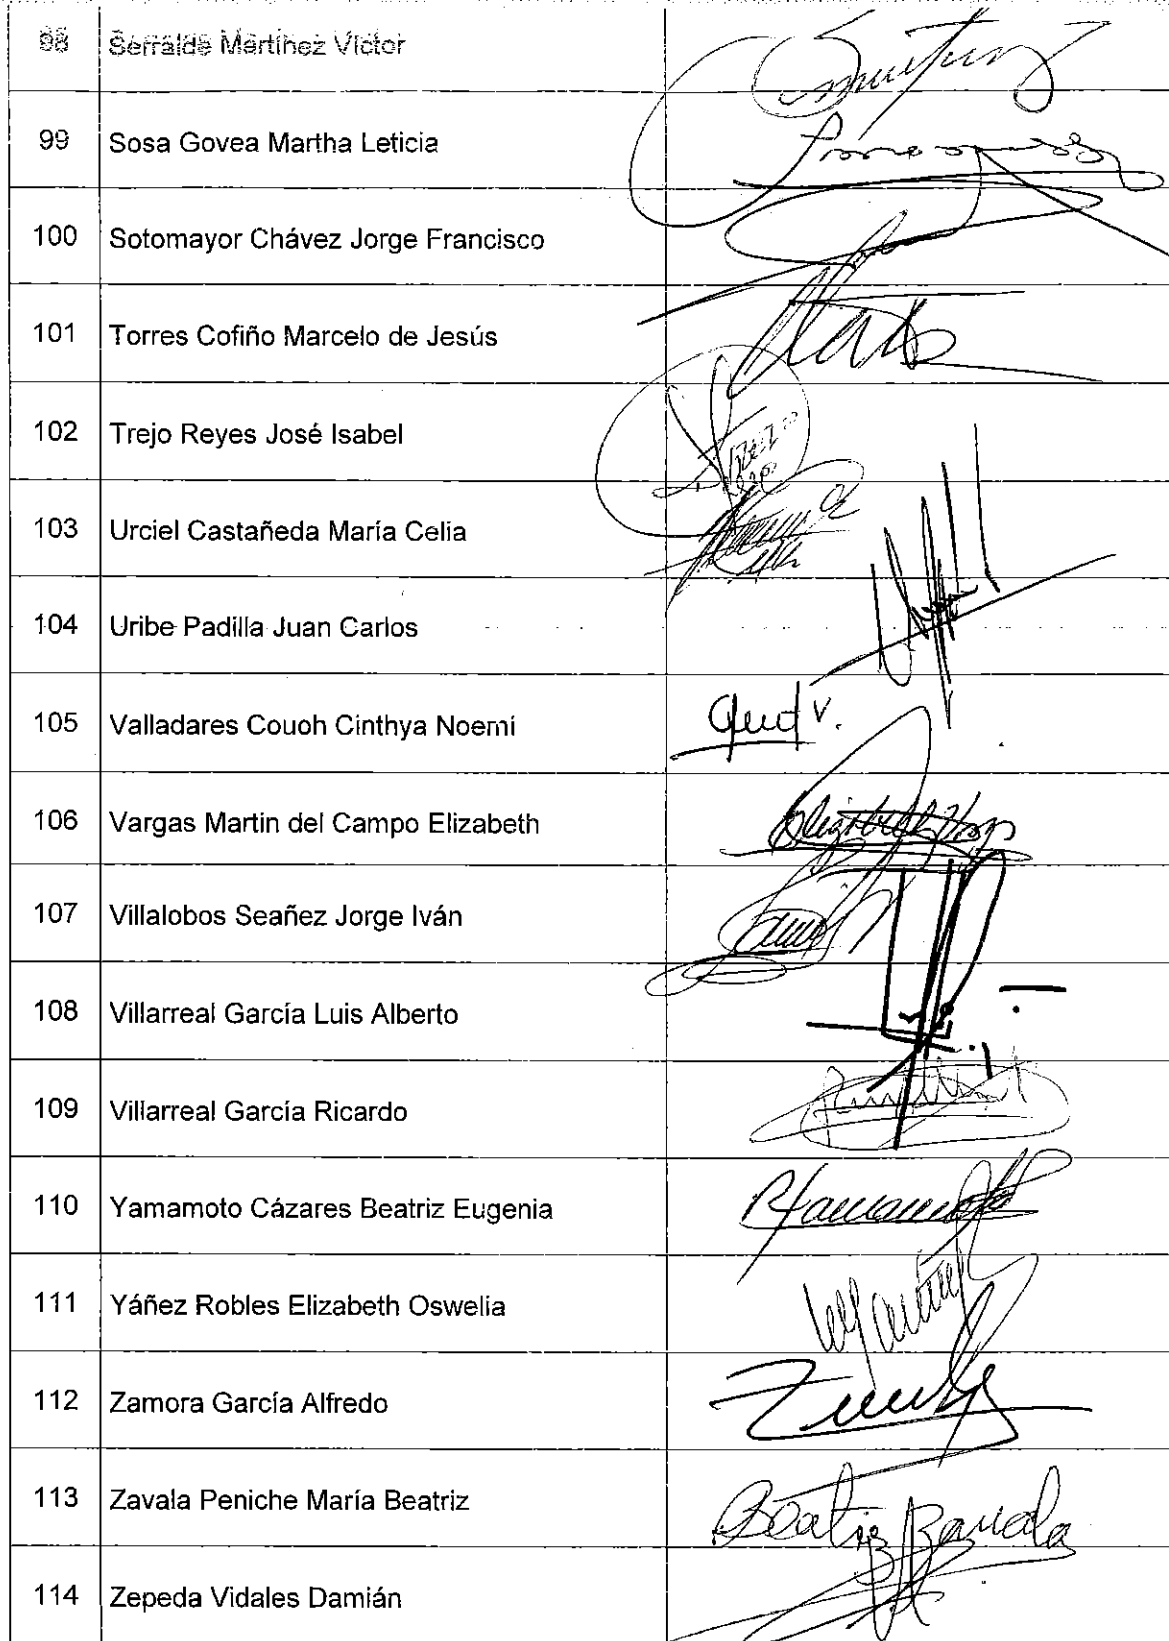 98 Serralde Martínez Víctor
99 Sosa Govea Martha Leticia
100 Sotomayor Chávez Jorge Francisco
101 Torres Cofiño Marcelo de Jesús
102 Trejo Reyes José Isabel
103 Urciel Castañeda María Celia
104 Uribe Padilla Juan Carlos
105 Valladares Couoh Cinthya Noemí
106 Vargas Martin del Campo Elizabeth
107 Villalobos Seañez Jorge Iván
108 Villarreal García Luis Alberto
109 Villarreal García Ricardo
110 Yamamoto Cázares Beatriz Eugenia
111 Yáñez Robles Elizabeth Oswelia
112 Zamora García Alfredo
113 Zavala Peniche María Beatriz Beatriz Zavala
114 Zepeda Vidales Damián